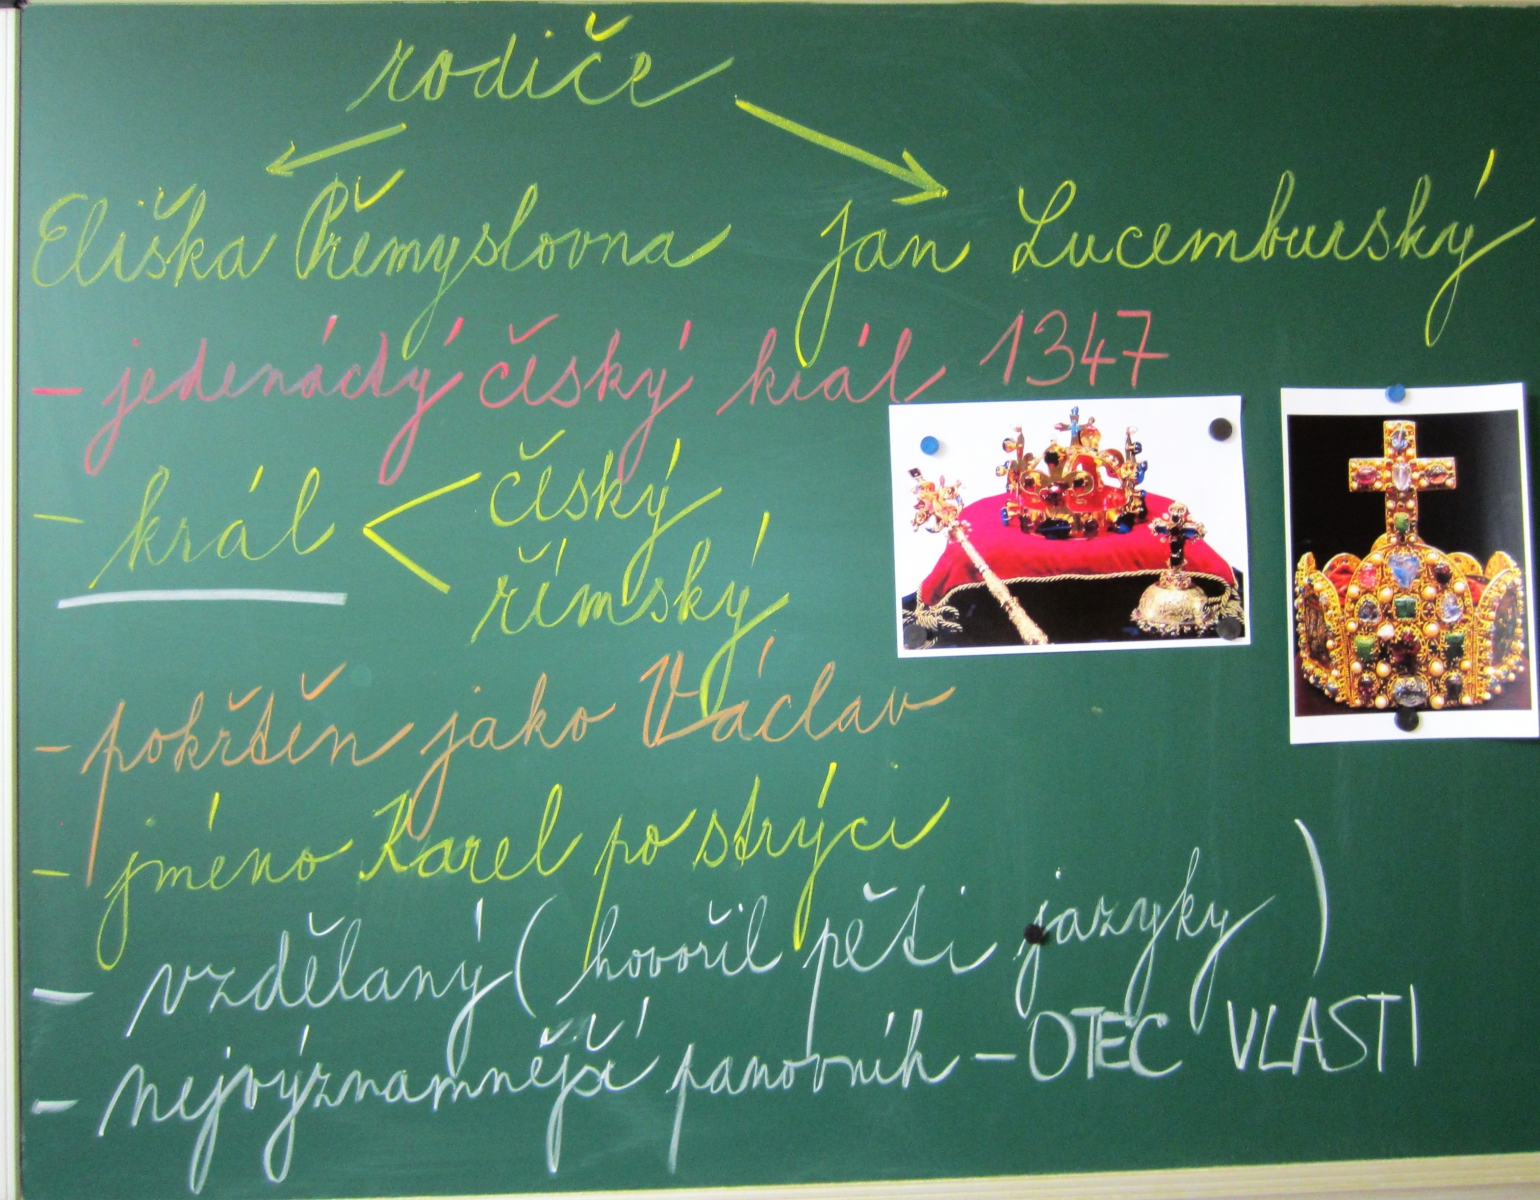 rodiče
Eliška Přemyslovna Jan Lucemburský
- jedenáctý český král 1347
- král < český
římský
- pokřtěn jako Václav
- jméno Karel po strýci
- vzdělaný (hovořil pěti jazyky)
- nejvýznamnější panovník - OTEC VLASTI